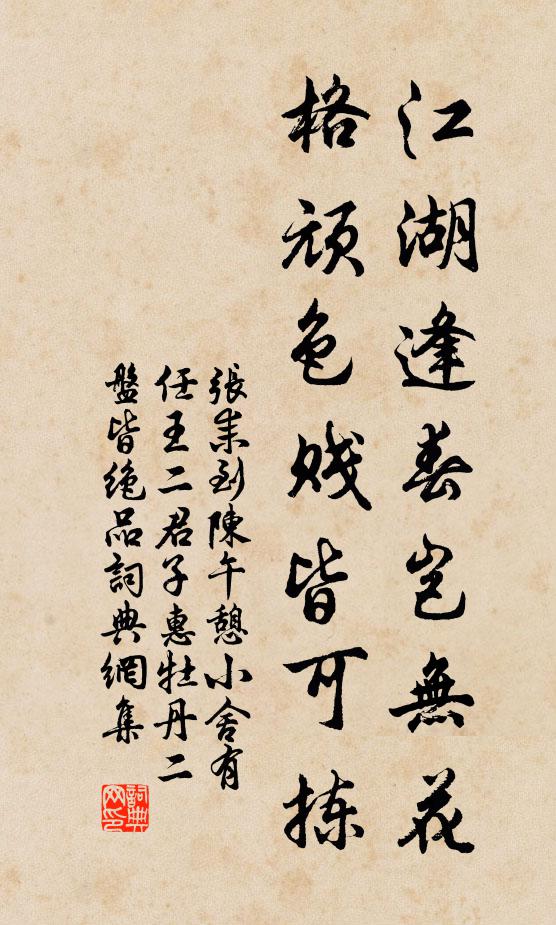 江湖逢春岂無花
格頑色賤皆可拣
張耒到陳午憩小舍有
任王二君子惠牡丹二
盤皆絶品詞典網集
詞典网印